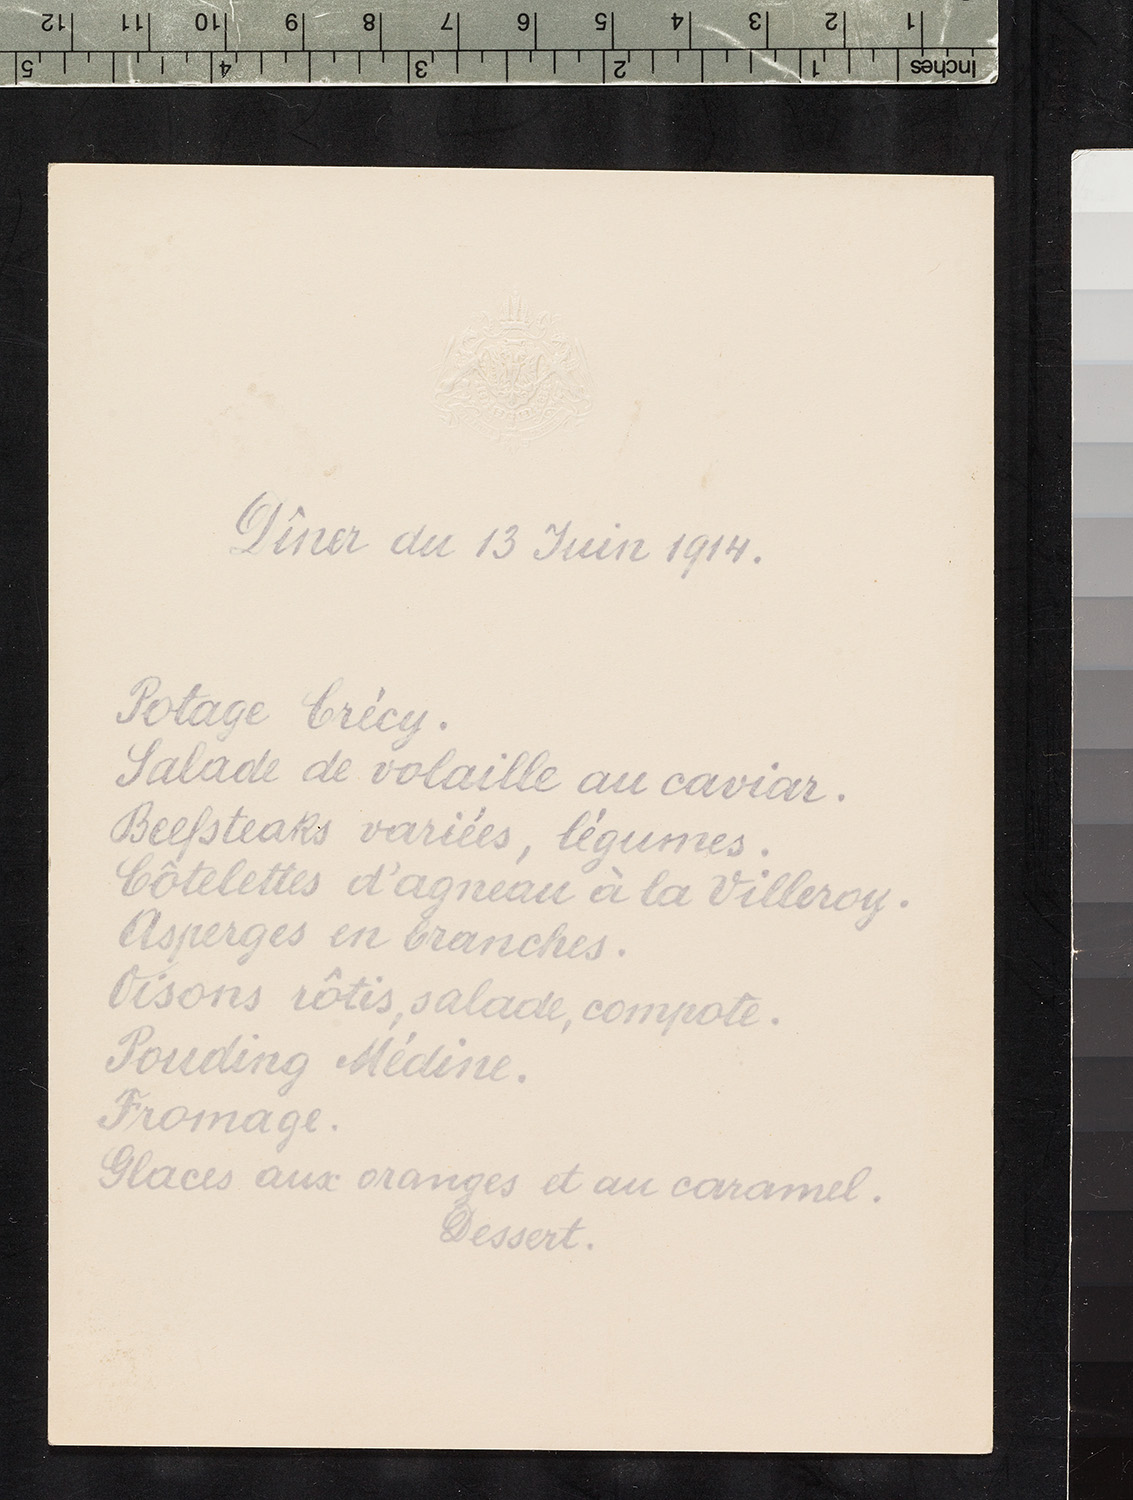 12 11 10 9 8 7 6 5 4 3 2 1
5 4 3 2 1 Inches
Dîner du 13 Juin 1914.
Potage Crécy.
Salade de volaille au caviar.
Beefsteaks variées, légumes.
Côtelettes d'agneau à la Villeroy.
Asperges en branches.
Oisons rôtis, salade, compote.
Pouding Médine.
Fromage.
Glaces aux oranges et au caramel.
Dessert.